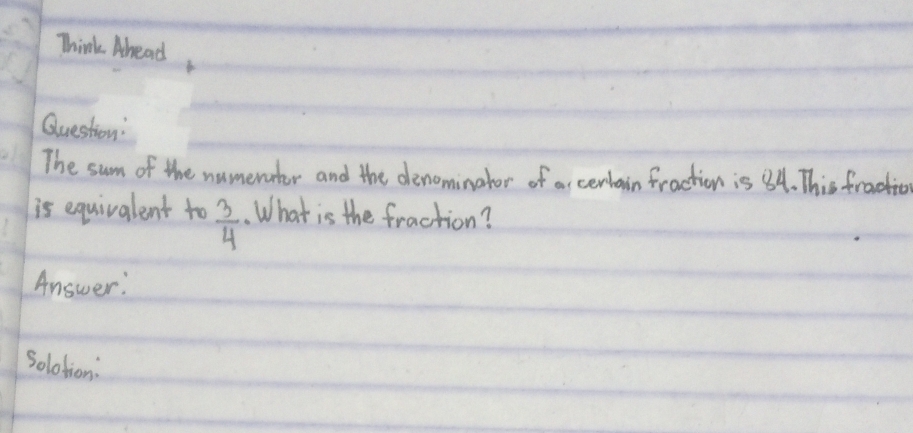 Think Ahead
Question:
The sum of the numerator and the denominator of a certain fraction is 84. This fraction
is equivalent to 3/4. What is the fraction?
Answer:
Solotion: